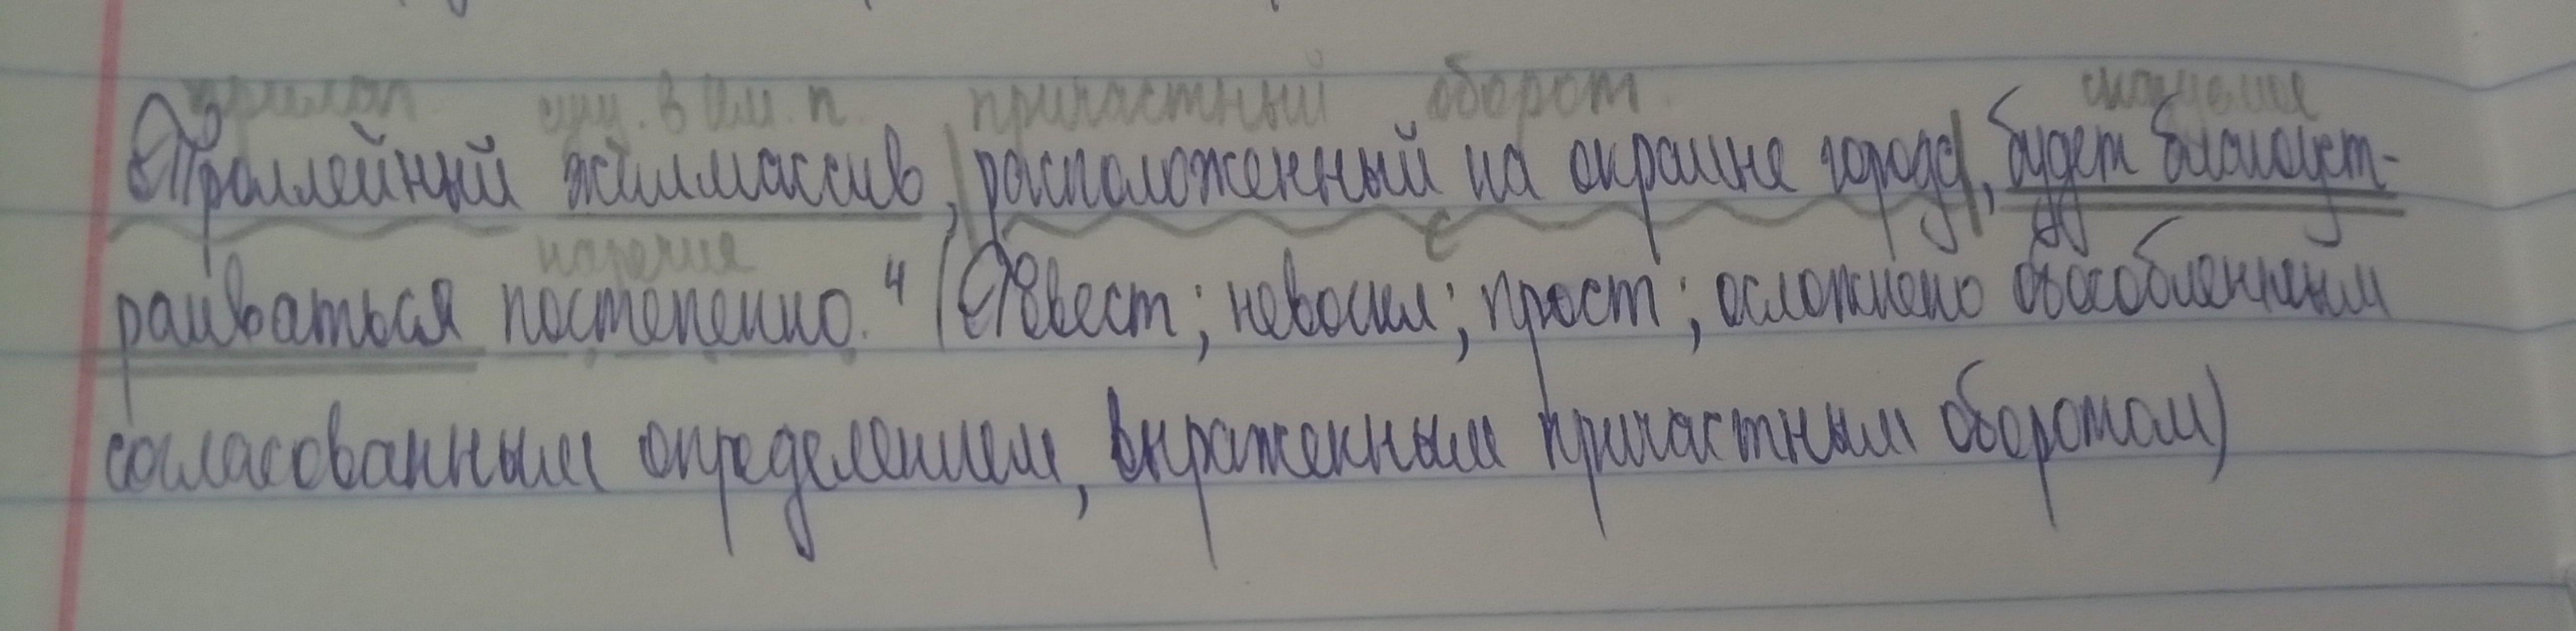 прилаг. сущ. в Им. п. причастный оборот. сказуемое
Троллейный жилмассив, расположенный на окраине города, будет благоуст-
наречие
раиваться постепенно.⁴ (Повест; невоскл; прост; осложнено обособленным
согласованным определением, выраженным причастным оборотом)